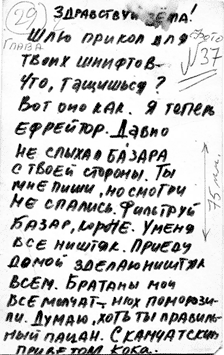 29
ГЛАВА
ФОТО
№37
ЗДРАВСТВУЙ ЗЁМА!
ШЛЮ ПРИКОЛ ДЛЯ
ТВОИХ ШНИФТОВ.
ЧТО, ТАЩИШЬСЯ?
ВОТ ОНО КАК. Я ТЕПЕРЬ
ЕФРЕЙТОР. ДАВНО
НЕ СЛЫХАЛ БАЗАРА
С ТВОЕЙ СТОРОНЫ. ТЫ
МНЕ ПИШИ, НО СМОТРИ
НЕ СПАЛИСЬ. ФИЛЬТРУЙ
БАЗАР, КОРОЧЕ. У МЕНЯ
ВСЕ НИШТЯК. ПРИЕДУ
ДОМОЙ ЗДЕЛАЮ НИШТЯК
ВСЕМ. БРАТАНЫ МОИ
ВСЕ МОЛЧАТ, НЮХ ПОМОРОЗИ-
ЛИ. ДУМАЮ, ХОТЬ ТЫ ПРАВИЛЬ-
НЫЙ ПАЦАН. С КАМЧАТСКИМ
ПРИВЕТОМ КОБА.
75 мм.